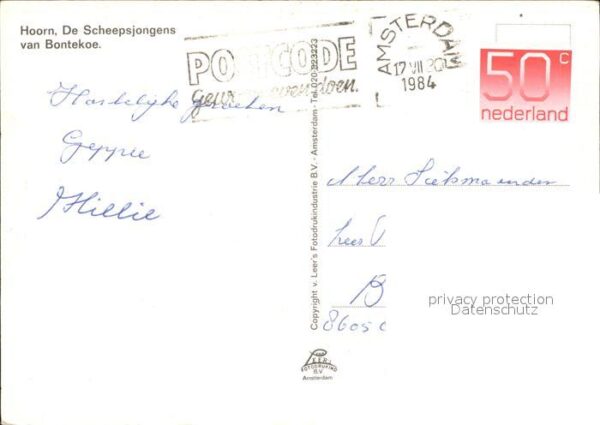 Hoorn, De Scheepsjongens
van Bontekoe.
POSTCODE
gewoon even doen.
AMSTERDAM
17 VII 20
1984
50 c
nederland
Hartelijke groeten
Geppie
Millie
Copyright v. Leer's Fotodrukindustrie B.V. - Amsterdam - Tel. 020-223223
Mevr
B
8605 C
privacy protection
Datenschutz
van LEER'S
FOTODRUKIND
B.V.
Amsterdam